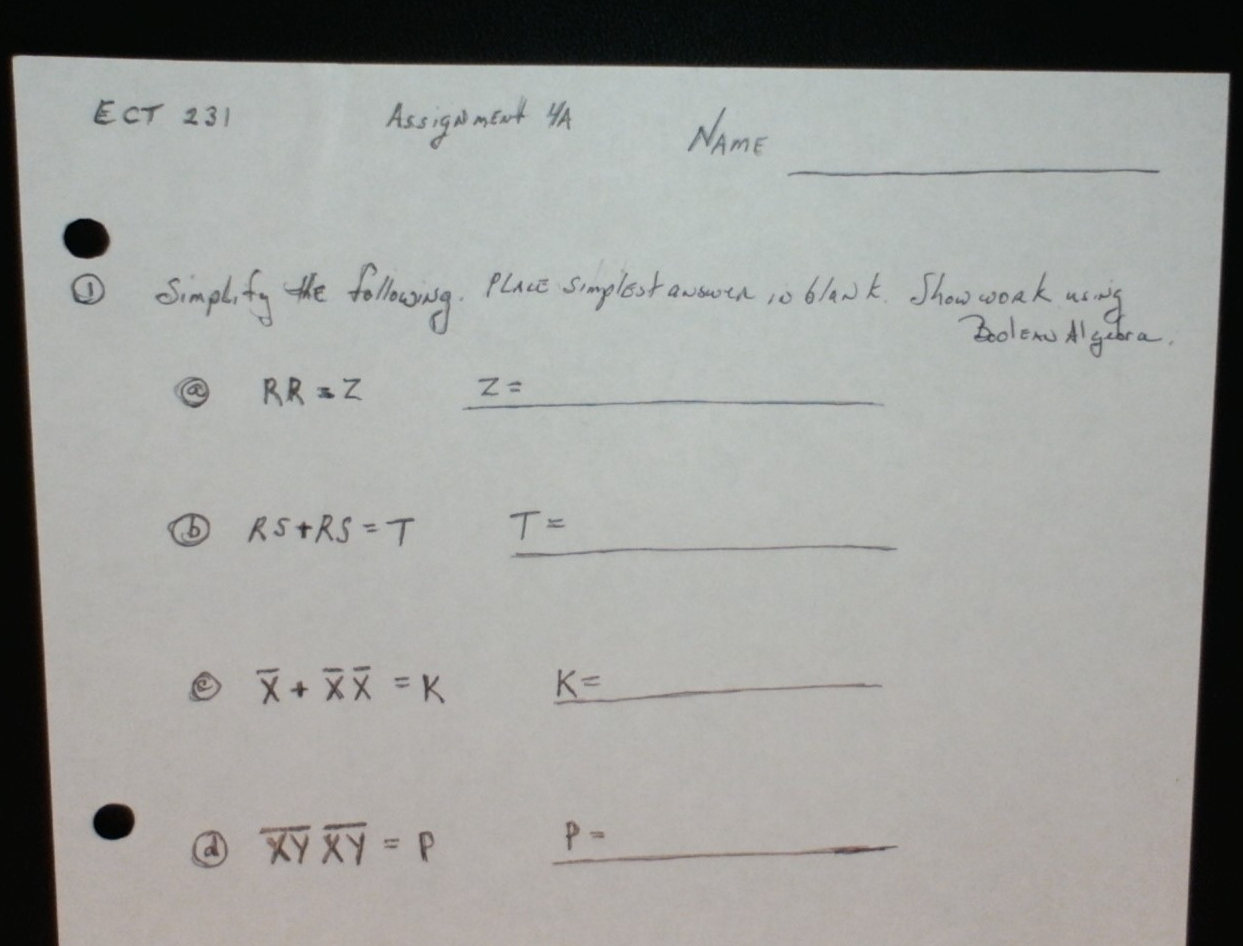 ECT 231 Assignment 4A NAME
① Simplify the following. PLACE Simplest answer in blank. Show work using
Boolean Algebra.
ⓐ RR = Z Z =
ⓑ RS + RS = T T =
ⓒ X̅ + X̅ X̅ = K K =
ⓓ X̅Y̅ X̅Y̅ = P P =